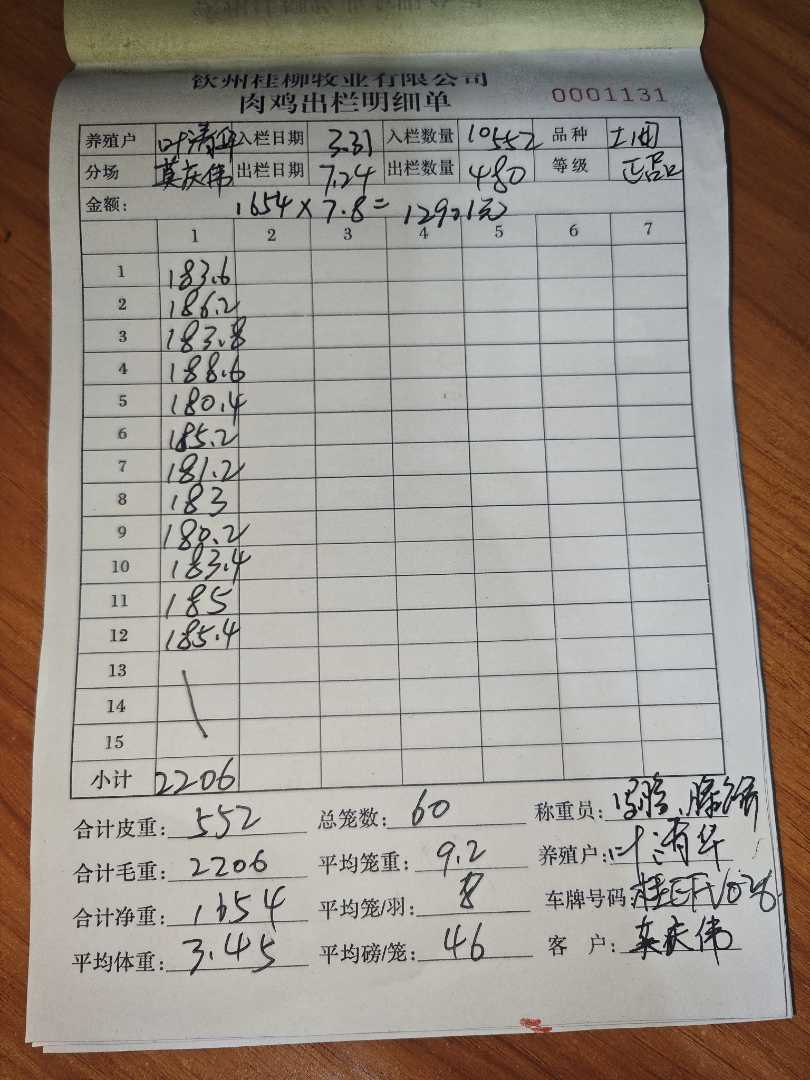 钦州桂柳牧业有限公司
肉鸡出栏明细单 0001131
养殖户 叶清华 入栏日期 3.31 入栏数量 10552 品种 土2阉
分场 莫庆伟 出栏日期 7.24 出栏数量 480 等级 正品
金额: 1654×7.8=12901元
1 2 3 4 5 6 7
1 183.6
2 186.2
3 183.8
4 188.6
5 180.4
6 185.2
7 181.2
8 183
9 180.2
10 183.4
11 185
12 185.4
13
14
15
小计 2206
合计皮重: 552 总笼数: 60 称重员:
合计毛重: 2206 平均笼重: 9.2 养殖户: 叶清华
合计净重: 1654 平均笼/羽: 8 车牌号码:
平均体重: 3.45 平均磅/笼: 46 客 户: 莫庆伟